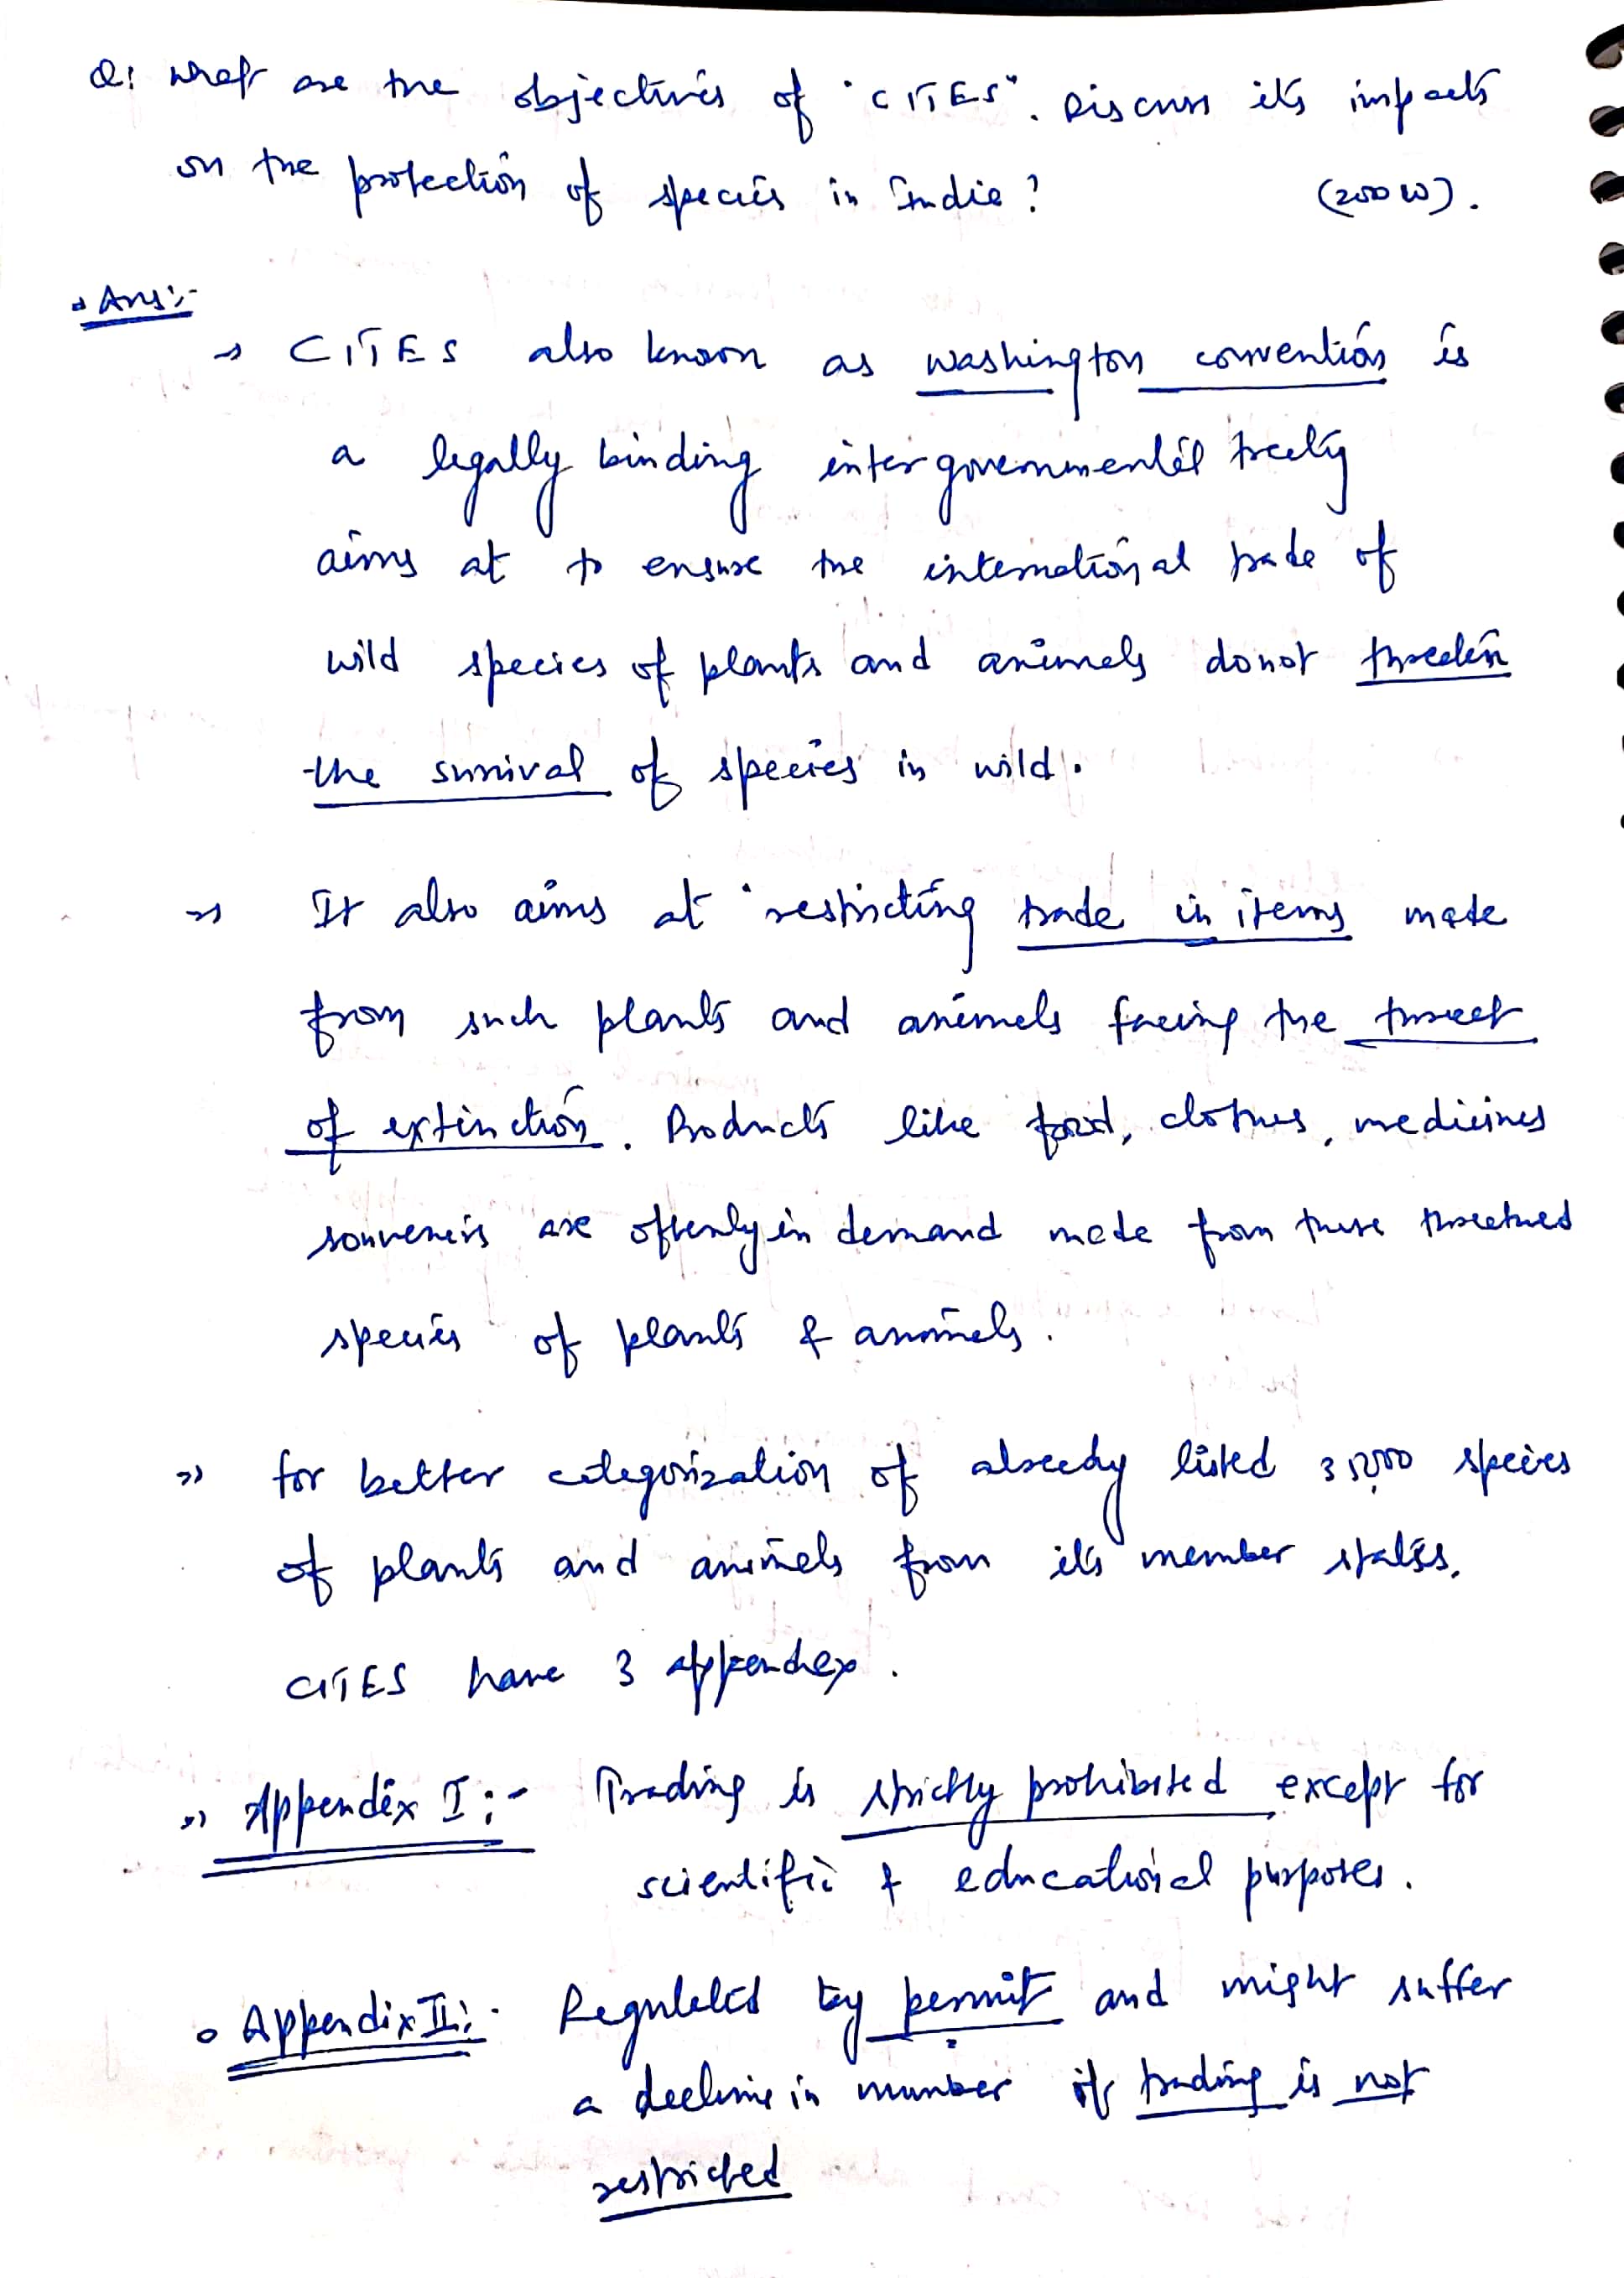 Q: What are the objectives of "CITES". Discuss its impacts
on the protection of species in India? (200 W).
Ans:-
→ CITES also known as Washington convention is
a legally binding intergovernmental treaty
aims at to ensure the international trade of
wild species of plants and animals donot threaten
the survival of species in wild.
→ It also aims at restricting trade in items made
from such plants and animals facing the threat
of extinction. Products like food, clothes, medicines
souveneirs are oftenly in demand made from these threatned
species of plants & animals.
→ for better categorization of already listed species
of plants and animals from its member states.
CITES have 3 appendex.
→ Appendix I:- Trading is strictly prohibited except for
scientific & educational purposes.
o Appendix II:- Regulated by permit and might suffer
a decline in number if trading is not
restricted